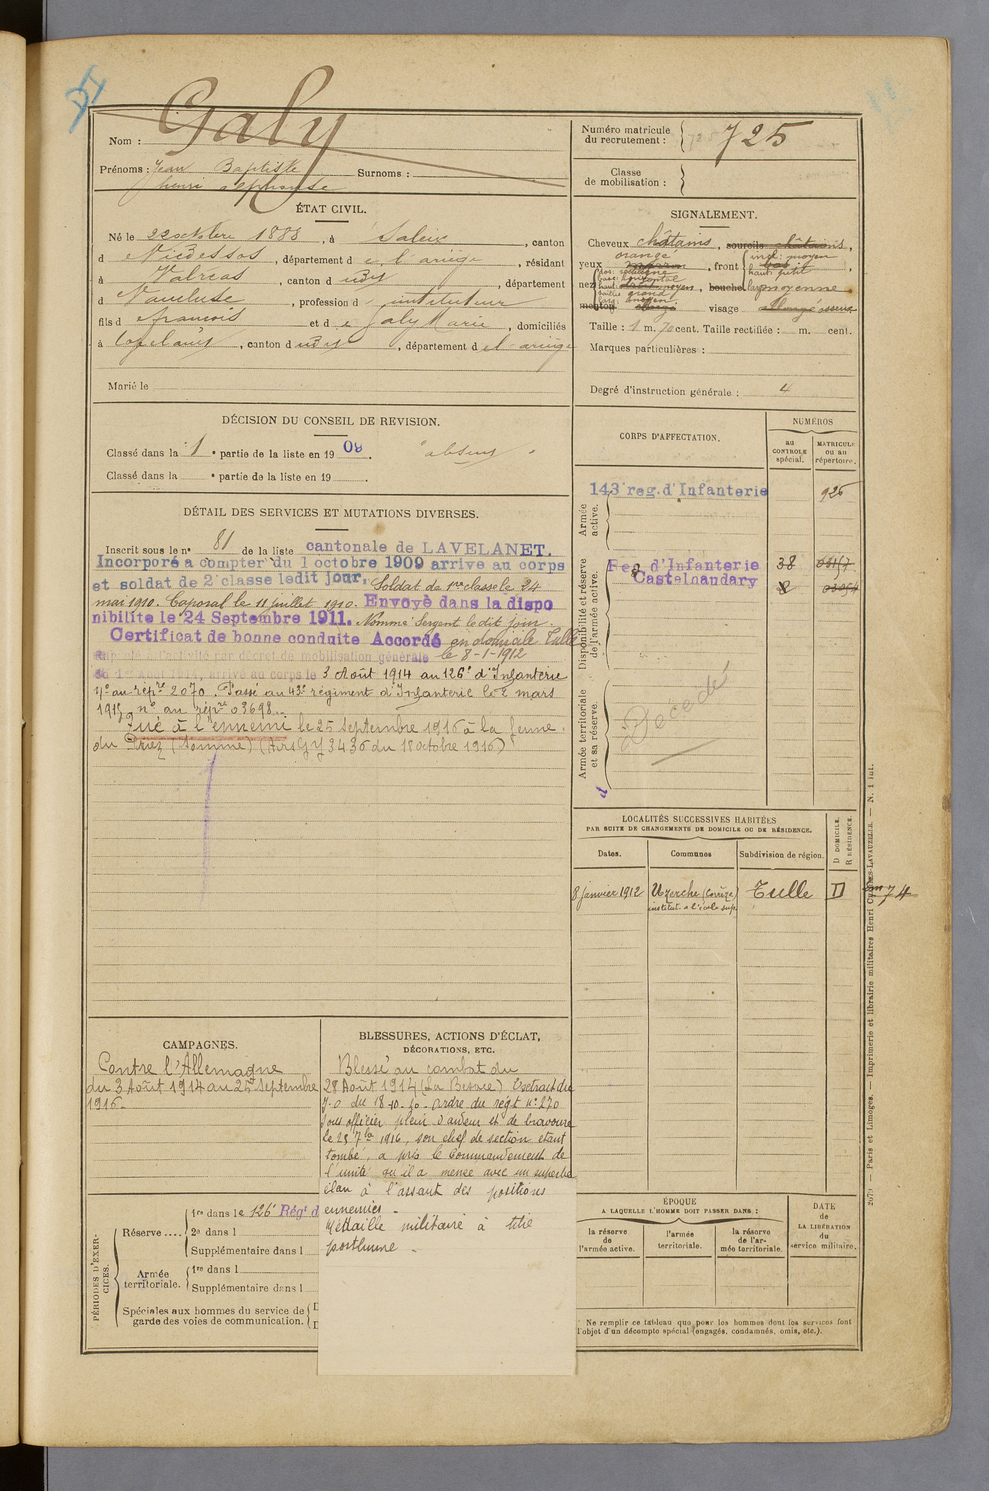 Galy
Nom :
Prénoms : Jean Baptiste Surnoms :
henri alphonse
ÉTAT CIVIL.
Né le 22 octobre 1888, à Saleix, canton
d Vicdessos, département d e l'ariège, résidant
à Valréas, canton d udt, département
d Vaucluse, profession d instituteur
fils d françois et d e Galy Marie, domiciliés
à , canton d udt, département d el-ariège
Marié le
DÉCISION DU CONSEIL DE REVISION.
Classé dans la 1e partie de la liste en 1909. absent
Classé dans la e partie de la liste en 19 .
DÉTAIL DES SERVICES ET MUTATIONS DIVERSES.
Inscrit sous le n° 81 de la liste cantonale de LAVELANET.
Incorporé à compter du 1 octobre 1909 arrivé au corps
et soldat de 2e classe ledit jour. Soldat de 1re classe le 24
mai 1910. Caporal le 11 juillet 1910. Envoyé dans la dispo
nibilité le 24 Septembre 1911. Nommé Sergent le dit jour.
Certificat de bonne conduite Accordé en domicile Tulle
Rappelé à l'activité par décret de mobilisation générale le 8-1-1912
du 1er Août 1914, arrivé au corps le 3 Août 1914 au 126e d'Infanterie
n° au répre 2070. Passé au 42e régiment d'Infanterie le 2 mars
1915, n° au répre 03698.
Tué à l'ennemi le 25 Septembre 1916 à la ferme
du Priez (Somme) (Avis GY 3436 du 18 octobre 1916)
CAMPAGNES.
Contre l'Allemagne
du 3 Août 1914 au 25 Septembre
1916.
BLESSURES, ACTIONS D'ÉCLAT,
DÉCORATIONS, ETC.
Blessé au combat du
28 Août 1914 (La Besace) Extrait du
J.O du 18-10-20 - ordre du régt n° 270
Sous officier plein d'ardeur et de bravoure
le 25 7bre 1916, son chef de section étant
tombé, a pris le commandement de
l'unité qu'il a menée avec un superbe
élan à l'assaut des positions
ennemies -
Médaille militaire à titre
posthume.
PÉRIODES D'EXERCICES.
Réserve ....
1re dans le 126e Régt d
2e dans l
Supplémentaire dans l
Armée territoriale.
1re dans l
Supplémentaire dans l
Spéciales aux hommes du service de
garde des voies de communication.
Numéro matricule
du recrutement : 725
Classe
de mobilisation :
SIGNALEMENT.
Cheveux châtains, sourcils châtains,
yeux orangé marron, front incl: moyen bas haut: petit,
nez dos: rectiligne base: horizontale haut: moyen saillie grand larg: moyen, bouche moyenne
menton visage osseux
Taille : 1 m. 70 cent. Taille rectifiée : m. cent.
Marques particulières :
Degré d'instruction générale : 4
CORPS D'AFFECTATION.
NUMÉROS
au
CONTROLE
spécial.
MATRICULE
ou au
répertoire.
Armée
active.
143e reg. d'Infanterie 926
Disponibilité et réserve
de l'armée active.
Reg d'Infanterie 38
Castelnaudary
Armée territoriale
et sa réserve.
Décédé
LOCALITÉS SUCCESSIVES HABITÉES
PAR SUITE DE CHANGEMENTS DE DOMICILE OU DE RÉSIDENCE.
Dates. Communes Subdivision de région.
D DOMICILE.
R RÉSIDENCE.
8 janvier 1912 Uzerche (Corrèze) Tulle D
institut. à l'école sup.
ÉPOQUE
A LAQUELLE L'HOMME DOIT PASSER DANS :
la réserve
de
l'armée active.
l'armée
territoriale.
la réserve
de l'ar-
mée territoriale.
DATE
de
LA LIBÉRATION
du
service militaire.
Ne remplir ce tableau que pour les hommes dont les services font
l'objet d'un décompte spécial (engagés, condamnés, omis, etc.).
Paris et Limoges. — Imprimerie et librairie militaires Henri CHARLES-LAVAUZELLE. — N. 1 int.